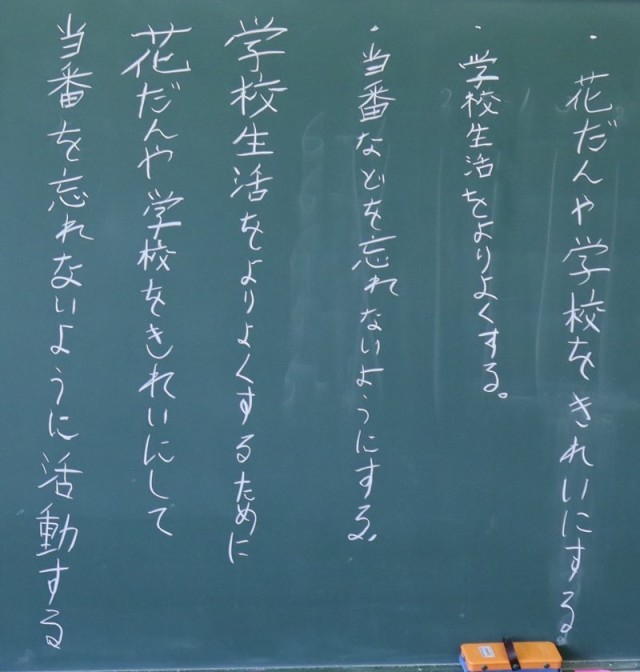 ・花だんや学校をきれいにする
・学校生活をよりよくする。
・当番などを忘れないようにする。
学校生活をよりよくするために
花だんや学校をきれいにして
当番を忘れないように活動する